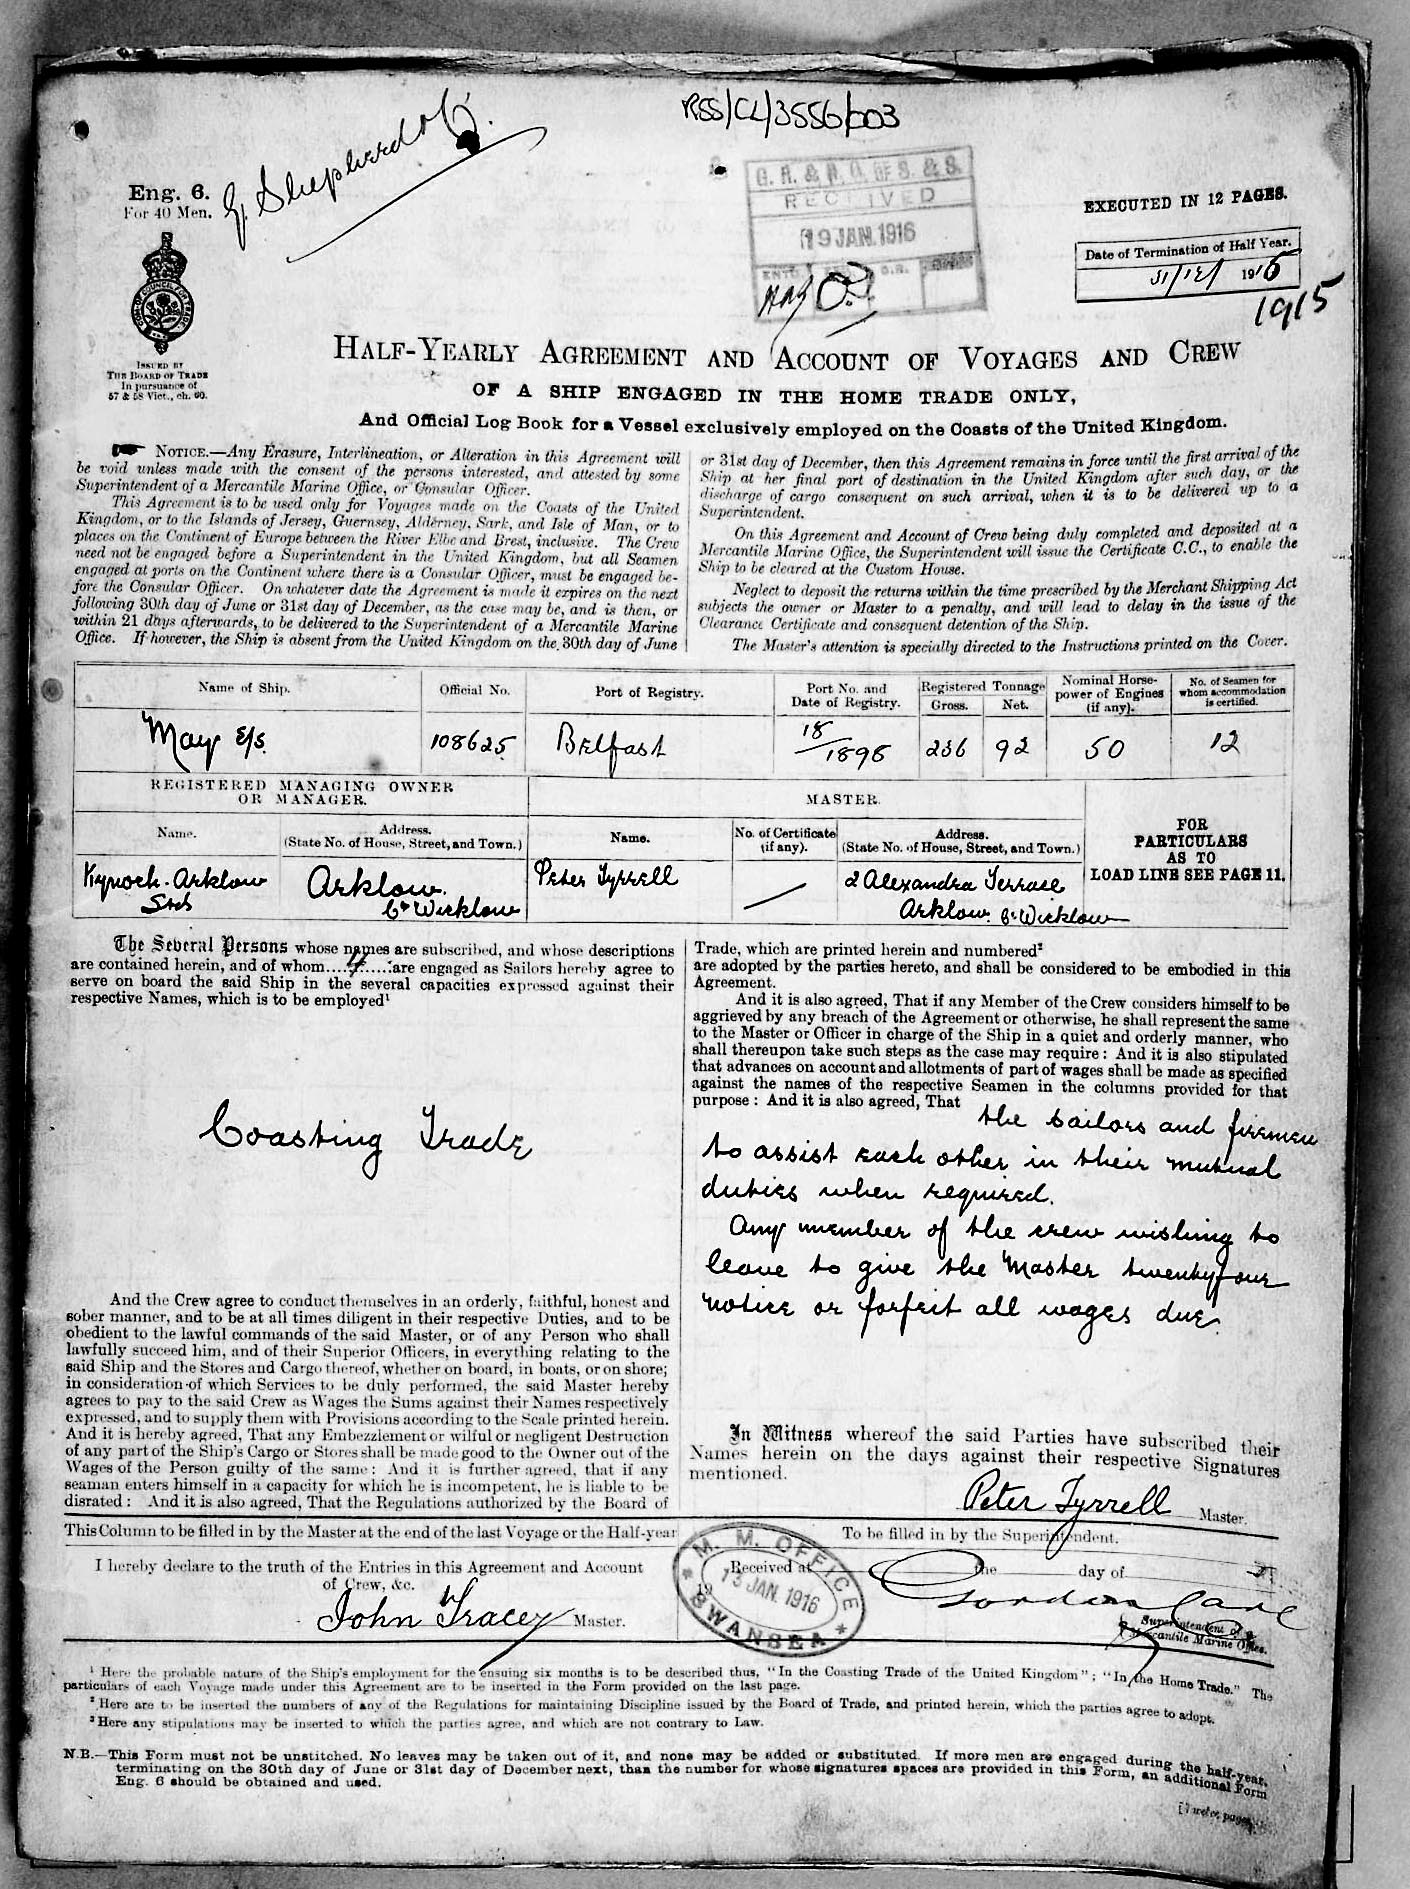 RSS/CL/3556/003
G. Shepherd
Eng. 6.
For 40 Men.
ISSUED BY
THE BOARD OF TRADE
In pursuance of
57 & 58 Vict., ch. 60.
G. R. & R. G. OF S. & S.
RECEIVED
19 JAN. 1916
EXECUTED IN 12 PAGES.
Date of Termination of Half Year.
31/12/ 1915
1915
HALF-YEARLY AGREEMENT AND ACCOUNT OF VOYAGES AND CREW
OF A SHIP ENGAGED IN THE HOME TRADE ONLY,
And Official Log Book for a Vessel exclusively employed on the Coasts of the United Kingdom.
NOTICE.—Any Erasure, Interlineation, or Alteration in this Agreement will
be void unless made with the consent of the persons interested, and attested by some
Superintendent of a Mercantile Marine Office, or Consular Officer.
This Agreement is to be used only for Voyages made on the Coasts of the United
Kingdom, or to the Islands of Jersey, Guernsey, Alderney, Sark, and Isle of Man, or to
places on the Continent of Europe between the River Elbe and Brest, inclusive. The Crew
need not be engaged before a Superintendent in the United Kingdom, but all Seamen
engaged at ports on the Continent where there is a Consular Officer, must be engaged be-
fore the Consular Officer. On whatever date the Agreement is made it expires on the next
following 30th day of June or 31st day of December, as the case may be, and is then, or
within 21 days afterwards, to be delivered to the Superintendent of a Mercantile Marine
Office. If however, the Ship is absent from the United Kingdom on the 30th day of June
or 31st day of December, then this Agreement remains in force until the first arrival of the
Ship at her final port of destination in the United Kingdom after such day, or the
discharge of cargo consequent on such arrival, when it is to be delivered up to a
Superintendent.
On this Agreement and Account of Crew being duly completed and deposited at a
Mercantile Marine Office, the Superintendent will issue the Certificate C.C., to enable the
Ship to be cleared at the Custom House.
Neglect to deposit the returns within the time prescribed by the Merchant Shipping Act
subjects the owner or Master to a penalty, and will lead to delay in the issue of the
Clearance Certificate and consequent detention of the Ship.
The Master's attention is specially directed to the Instructions printed on the Cover.
Name of Ship. Official No. Port of Registry. Port No. and Date of Registry. Registered Tonnage Gross. Net. Nominal Horse-power of Engines (if any). No. of Seamen for whom accommodation is certified.
May S/S. 108625 Belfast 18/1898 236 92 50 12
REGISTERED MANAGING OWNER
OR MANAGER.
MASTER.
Name. Address. (State No. of House, Street, and Town.) Name. No. of Certificate (if any). Address. (State No. of House, Street, and Town.)
FOR
PARTICULARS
AS TO
LOAD LINE SEE PAGE 11.
Kynoch-Arklow Arklow. Peter Tyrrell 2 Alexandra Terrace
Ltd Co Wicklow Arklow. Co Wicklow
The Several Persons whose names are subscribed, and whose descriptions
are contained herein, and of whom....4.....are engaged as Sailors hereby agree to
serve on board the said Ship in the several capacities expressed against their
respective Names, which is to be employed¹
Coasting Trade
And the Crew agree to conduct themselves in an orderly, faithful, honest and
sober manner, and to be at all times diligent in their respective Duties, and to be
obedient to the lawful commands of the said Master, or of any Person who shall
lawfully succeed him, and of their Superior Officers, in everything relating to the
said Ship and the Stores and Cargo thereof, whether on board, in boats, or on shore;
in consideration of which Services to be duly performed, the said Master hereby
agrees to pay to the said Crew as Wages the Sums against their Names respectively
expressed, and to supply them with Provisions according to the Scale printed herein.
And it is hereby agreed, That any Embezzlement or wilful or negligent Destruction
of any part of the Ship's Cargo or Stores shall be made good to the Owner out of the
Wages of the Person guilty of the same: And it is further agreed, that if any
seaman enters himself in a capacity for which he is incompetent, he is liable to be
disrated: And it is also agreed, That the Regulations authorized by the Board of
Trade, which are printed herein and numbered²
are adopted by the parties hereto, and shall be considered to be embodied in this
Agreement.
And it is also agreed, That if any Member of the Crew considers himself to be
aggrieved by any breach of the Agreement or otherwise, he shall represent the same
to the Master or Officer in charge of the Ship in a quiet and orderly manner, who
shall thereupon take such steps as the case may require: And it is also stipulated
that advances on account and allotments of part of wages shall be made as specified
against the names of the respective Seamen in the columns provided for that
purpose: And it is also agreed, That the sailors and firemen
to assist each other in their mutual
duties when required.
Any member of the crew wishing to
leave to give the Master twentyfour
notice or forfeit all wages due.
In Witness whereof the said Parties have subscribed their
Names herein on the days against their respective Signatures
mentioned.
Peter Tyrrell Master.
This Column to be filled in by the Master at the end of the last Voyage or the Half-year
I hereby declare to the truth of the Entries in this Agreement and Account
of Crew, &c.
John Tracey Master.
To be filled in by the Superintendent.
Received at the day of
19
M. M. OFFICE
13 JAN. 1916
SWANSEA
Superintendent of a
Mercantile Marine Office.
¹ Here the probable nature of the Ship's employment for the ensuing six months is to be described thus, "In the Coasting Trade of the United Kingdom"; "In the Home Trade." The
particulars of each Voyage made under this Agreement are to be inserted in the Form provided on the last page.
² Here are to be inserted the numbers of any of the Regulations for maintaining Discipline issued by the Board of Trade, and printed herein, which the parties agree to adopt.
³ Here any stipulations may be inserted to which the parties agree, and which are not contrary to Law.
N.B.—This Form must not be unstitched. No leaves may be taken out of it, and none may be added or substituted. If more men are engaged during the half-year,
terminating on the 30th day of June or 31st day of December next, than the number for whose signatures spaces are provided in this Form, an additional Form
Eng. 6 should be obtained and used.
[Twelve pages.